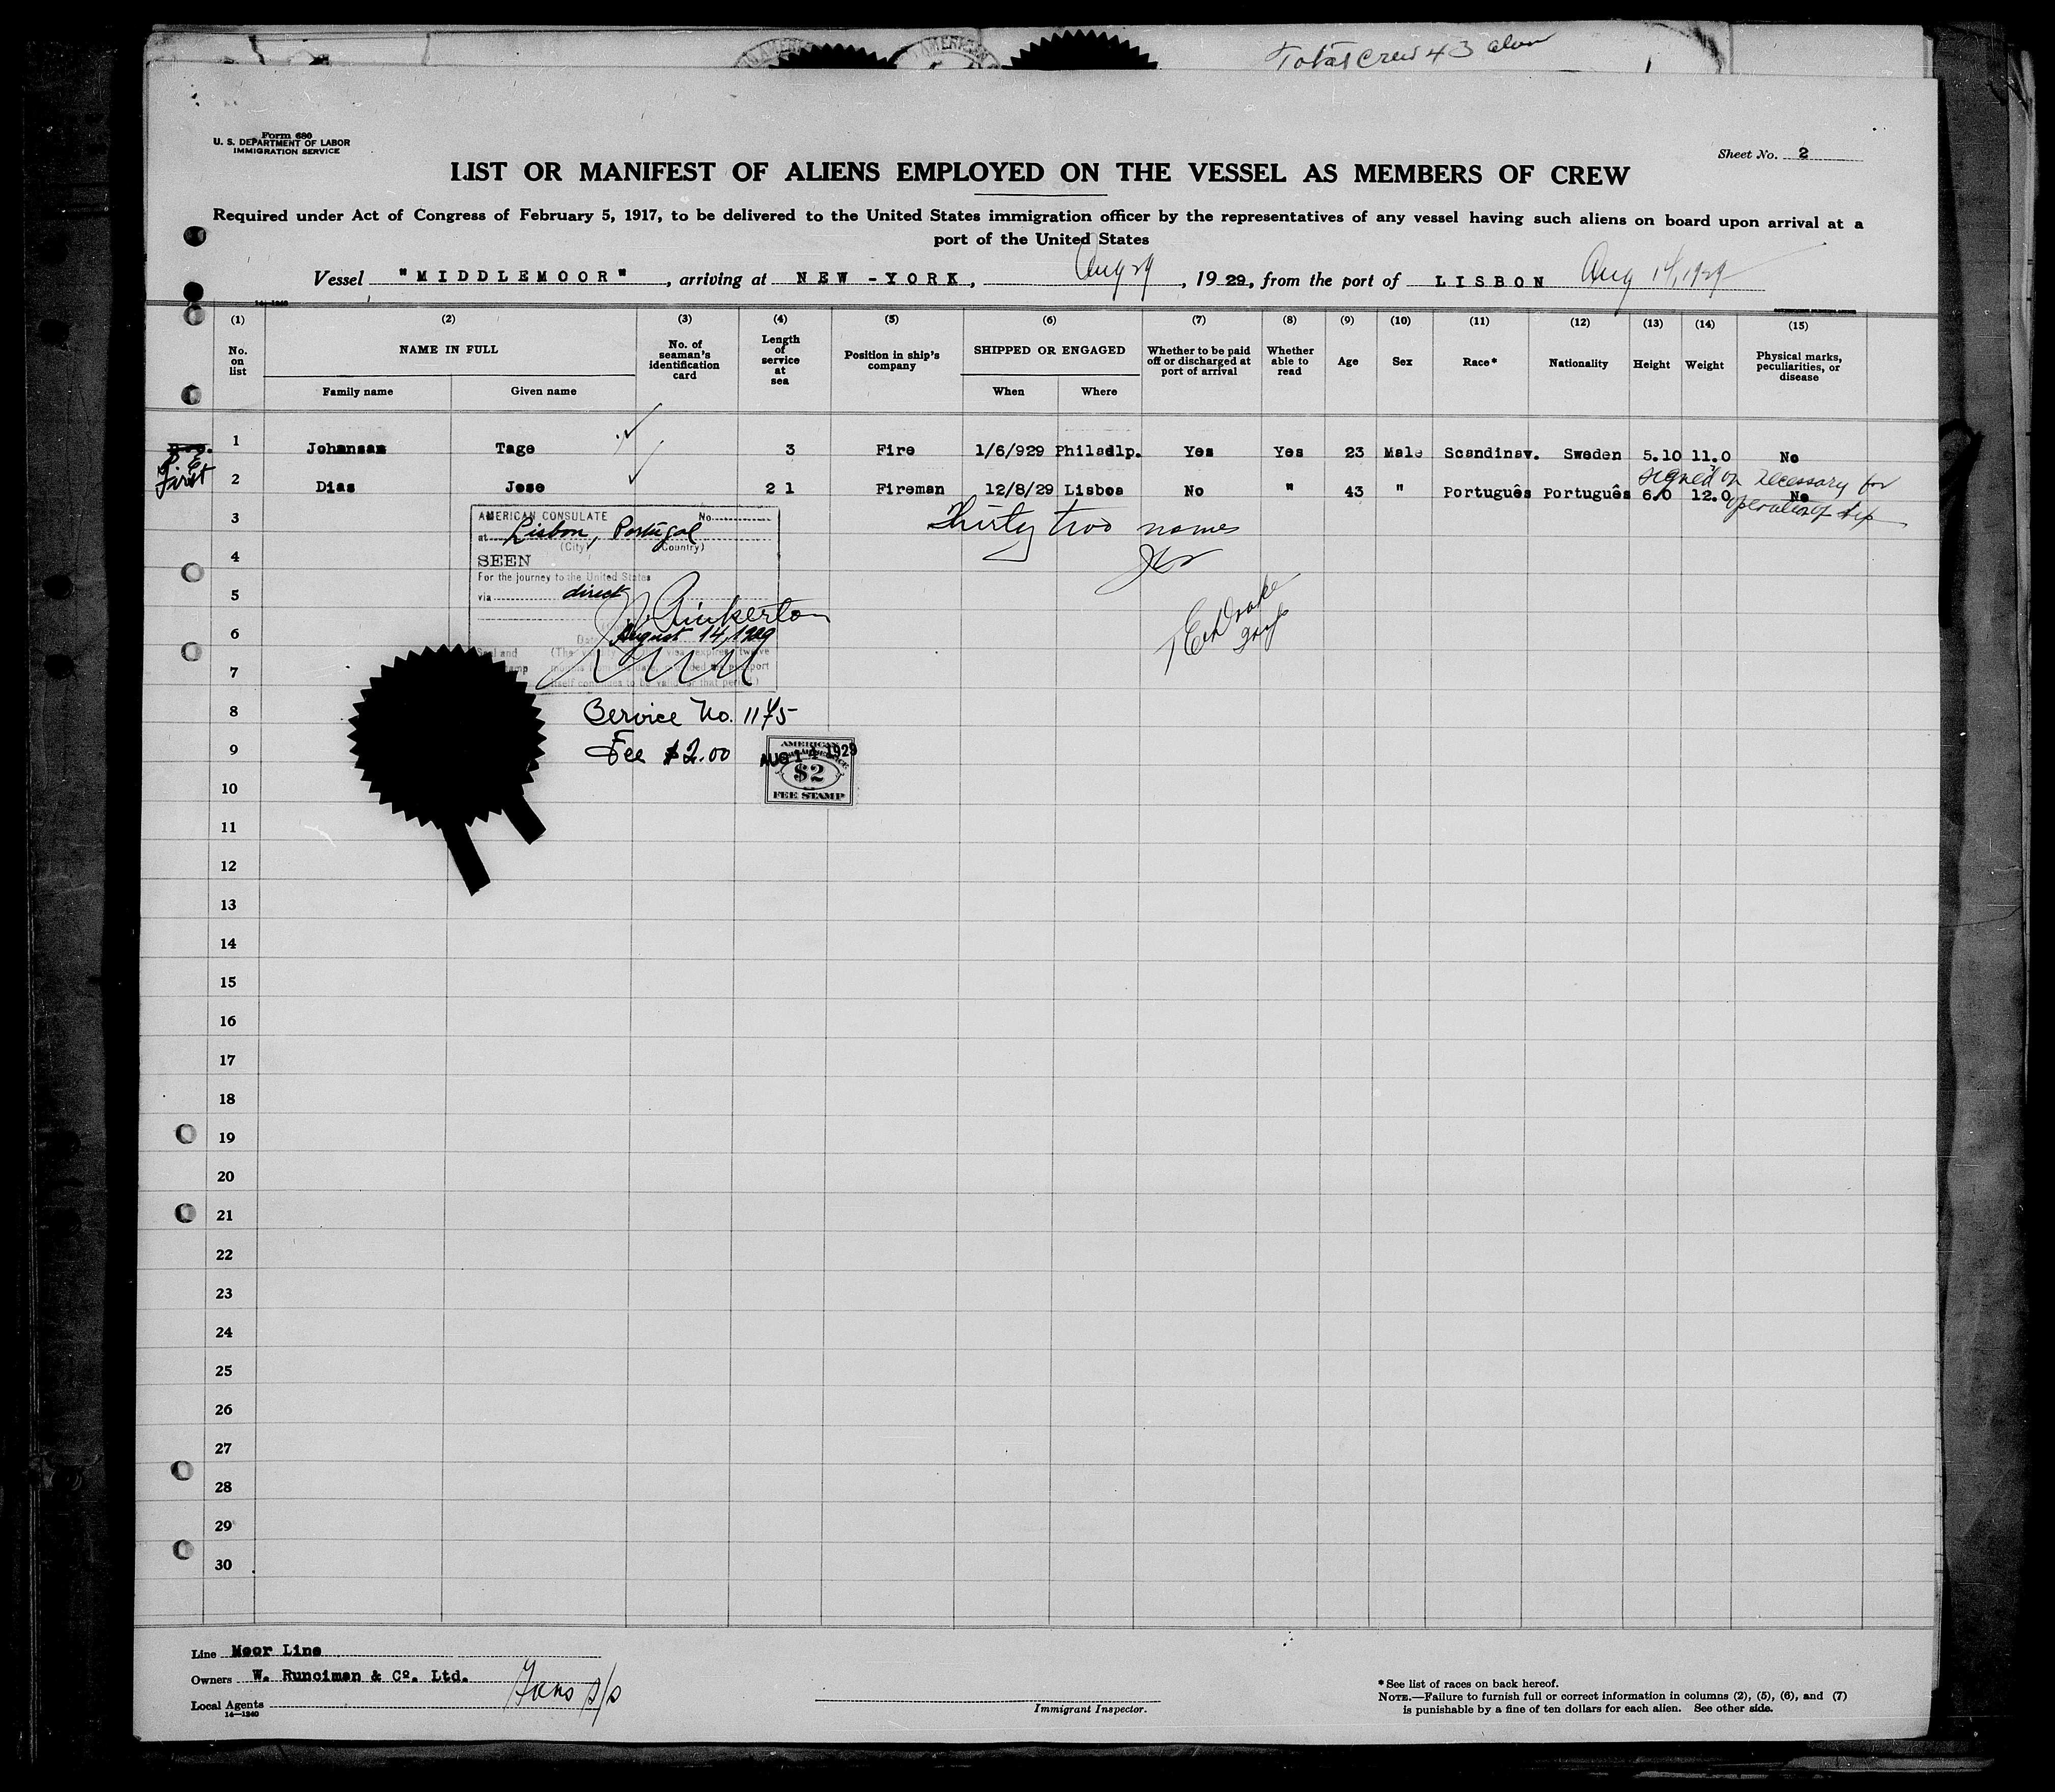 Total Crew 43
Form 680
U. S. DEPARTMENT OF LABOR
IMMIGRATION SERVICE
Sheet No. 2
LIST OR MANIFEST OF ALIENS EMPLOYED ON THE VESSEL AS MEMBERS OF CREW
Required under Act of Congress of February 5, 1917, to be delivered to the United States immigration officer by the representatives of any vessel having such aliens on board upon arrival at a
port of the United States
Vessel "MIDDLEMOOR", arriving at NEW-YORK, Aug 29, 1929, from the port of LISBON Aug 14, 1929
14-1240
(1) (2) (3) (4) (5) (6) (7) (8) (9) (10) (11) (12) (13) (14) (15)
No. on list
NAME IN FULL
Family name
Given name
No. of seaman's identification card
Length of service at sea
Position in ship's company
SHIPPED OR ENGAGED
When
Where
Whether to be paid off or discharged at port of arrival
Whether able to read
Age
Sex
Race*
Nationality
Height
Weight
Physical marks, peculiarities, or disease
1 Johansan Tage 3 Fire 1/6/929 Philadlp. Yes Yes 23 Male Scandinav. Sweden 5.10 11.0 No
First
signed on necessary for
2 Dias Jose 21 Fireman 12/8/29 Lisboa No " 43 " Português Português 6.0 12.0 No
operation of ship
3
4
5
6
7
8
9
10
11
12
13
14
15
16
17
18
19
20
21
22
23
24
25
26
27
28
29
30
AMERICAN CONSULATE No.
at Lisbon, Portugal
(City) (Country)
SEEN
For the journey to the United States
via direct
Pinkerton
August 14, 1929
Thirty two names
Service No. 1175
Fee $2.00
AMERICAN
AUG 14 1929
$2
FEE STAMP
Line Moor Line
Owners W. Runciman & Cº. Ltd.
Local Agents
14—1240
Immigrant Inspector.
* See list of races on back hereof.
NOTE.—Failure to furnish full or correct information in columns (2), (5), (6), and (7)
is punishable by a fine of ten dollars for each alien. See other side.